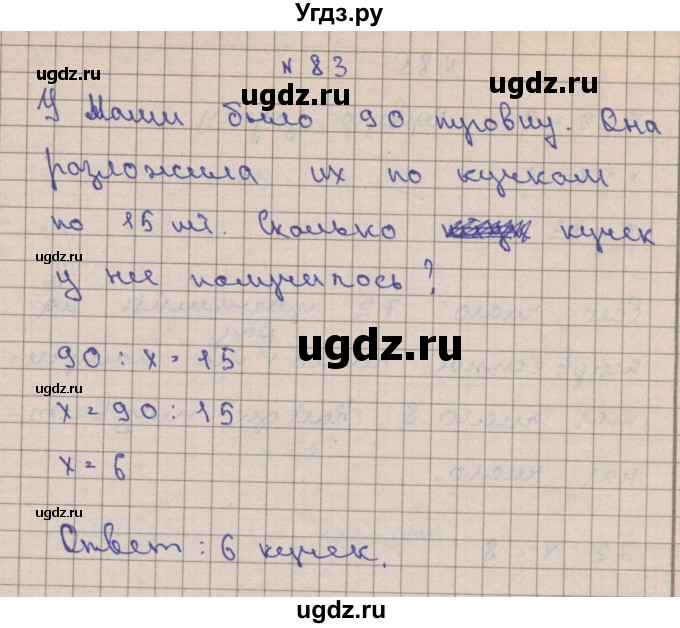 Угдз.ру
N 83
У Маши было 90 пуговиц. Она
разложила их по кучкам
по 15 шт. Сколько кучек
у нее получилось?
90 : x = 15
x = 90 : 15
x = 6
Ответ : 6 кучек.
ugdz.ru
ugdz.ru
ugdz.ru
ugdz.ru
ugdz.ru
ugdz.ru
ugdz.ru
ugdz.ru
ugdz.ru